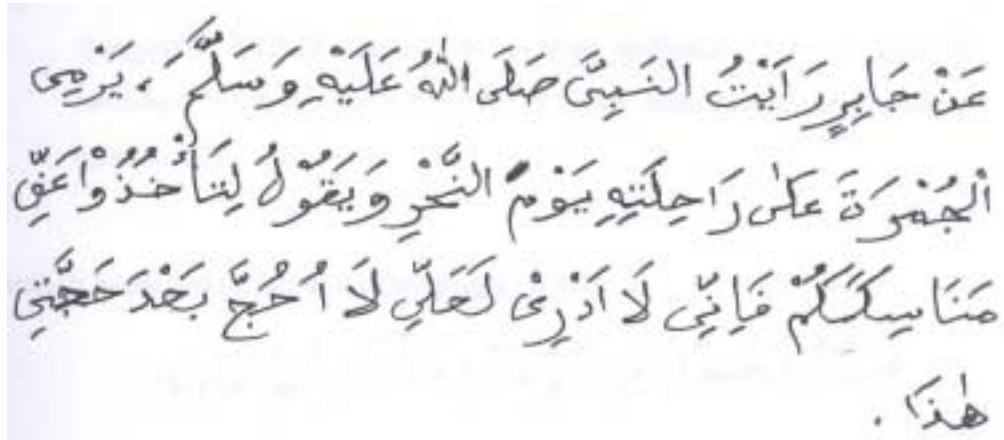 عَنْ جَابِرٍ رَاَيْتُ النَّبِيَّ صَلَى اللهُ عَلَيْهِ وَسَلَّمَ، يَرْمِى
اْلجُمْرَةَ عَلٰى رَاحِلَتِهِ يَوْمَ النَّحْرِ وَيَقُوْلُ لِتَأْخُذُوْا عَنِّى
مَنَاسِكَكُمْ فَاِنِّى لَا اَدْرِىْ لَعَلِّى لَا اُحُجَّ بَعْدَ حَجَّتِى
هٰذَا .